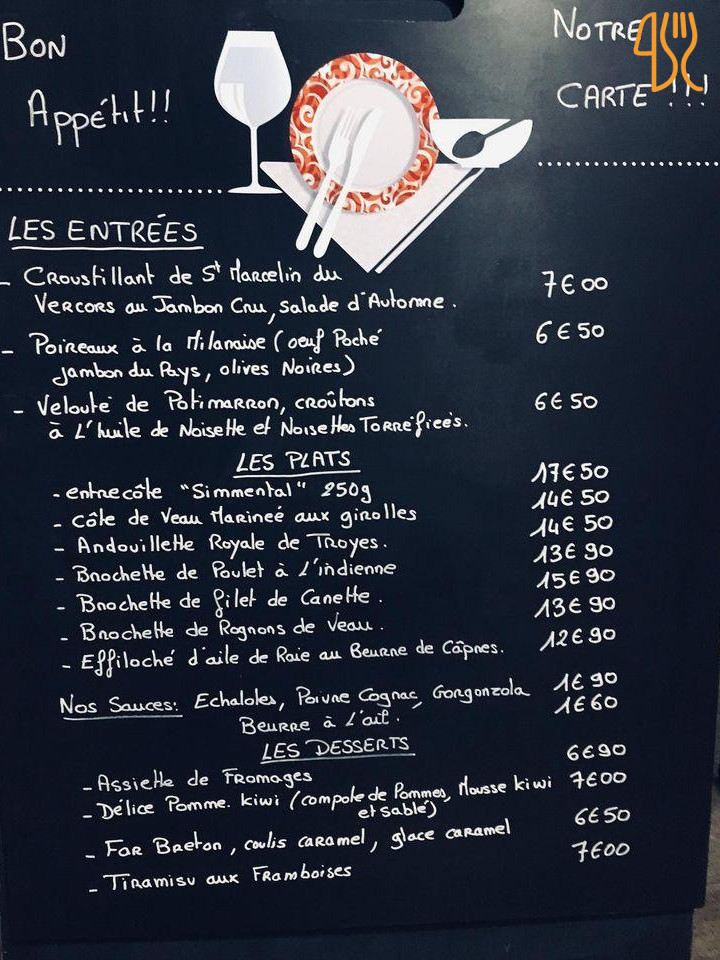 Bon
Appétit!!
Notre
CARTE !!!
LES ENTRÉES
- Croustillant de St Marcelin du
Vercors au Jambon Cru, Salade d'Automne. 7€00
- Poireaux à la Milanaise (oeuf Poché 6€50
jambon du Pays, olives Noires)
- Velouté de Potimarron, croûtons 6€50
à L'huile de Noisette et Noisettes Torréfiées.
LES PLATS
- entrecôte "Simmental" 250g 17€50
- côte de Veau Marineé aux girolles 14€50
- Andouillette Royale de Troyes. 14€50
- Brochette de Poulet à L'indienne 13€90
- Brochette de filet de Canette. 15€90
- Brochette de Rognons de Veau. 13€90
- Effiloché d'aile de Raie au Beurre de Câpres. 12€90
Nos Sauces: Echalotes, Poivre Cognac, Gorgonzola 1€90
Beurre à L'ail. 1€60
LES DESSERTS
- Assiette de Fromages 6€90
- Délice Pomme. kiwi (compote de Pommes, Mousse kiwi 7€00
et sablé)
- Far Breton, coulis caramel, glace caramel 6€50
- Tiramisu aux Framboises 7€00